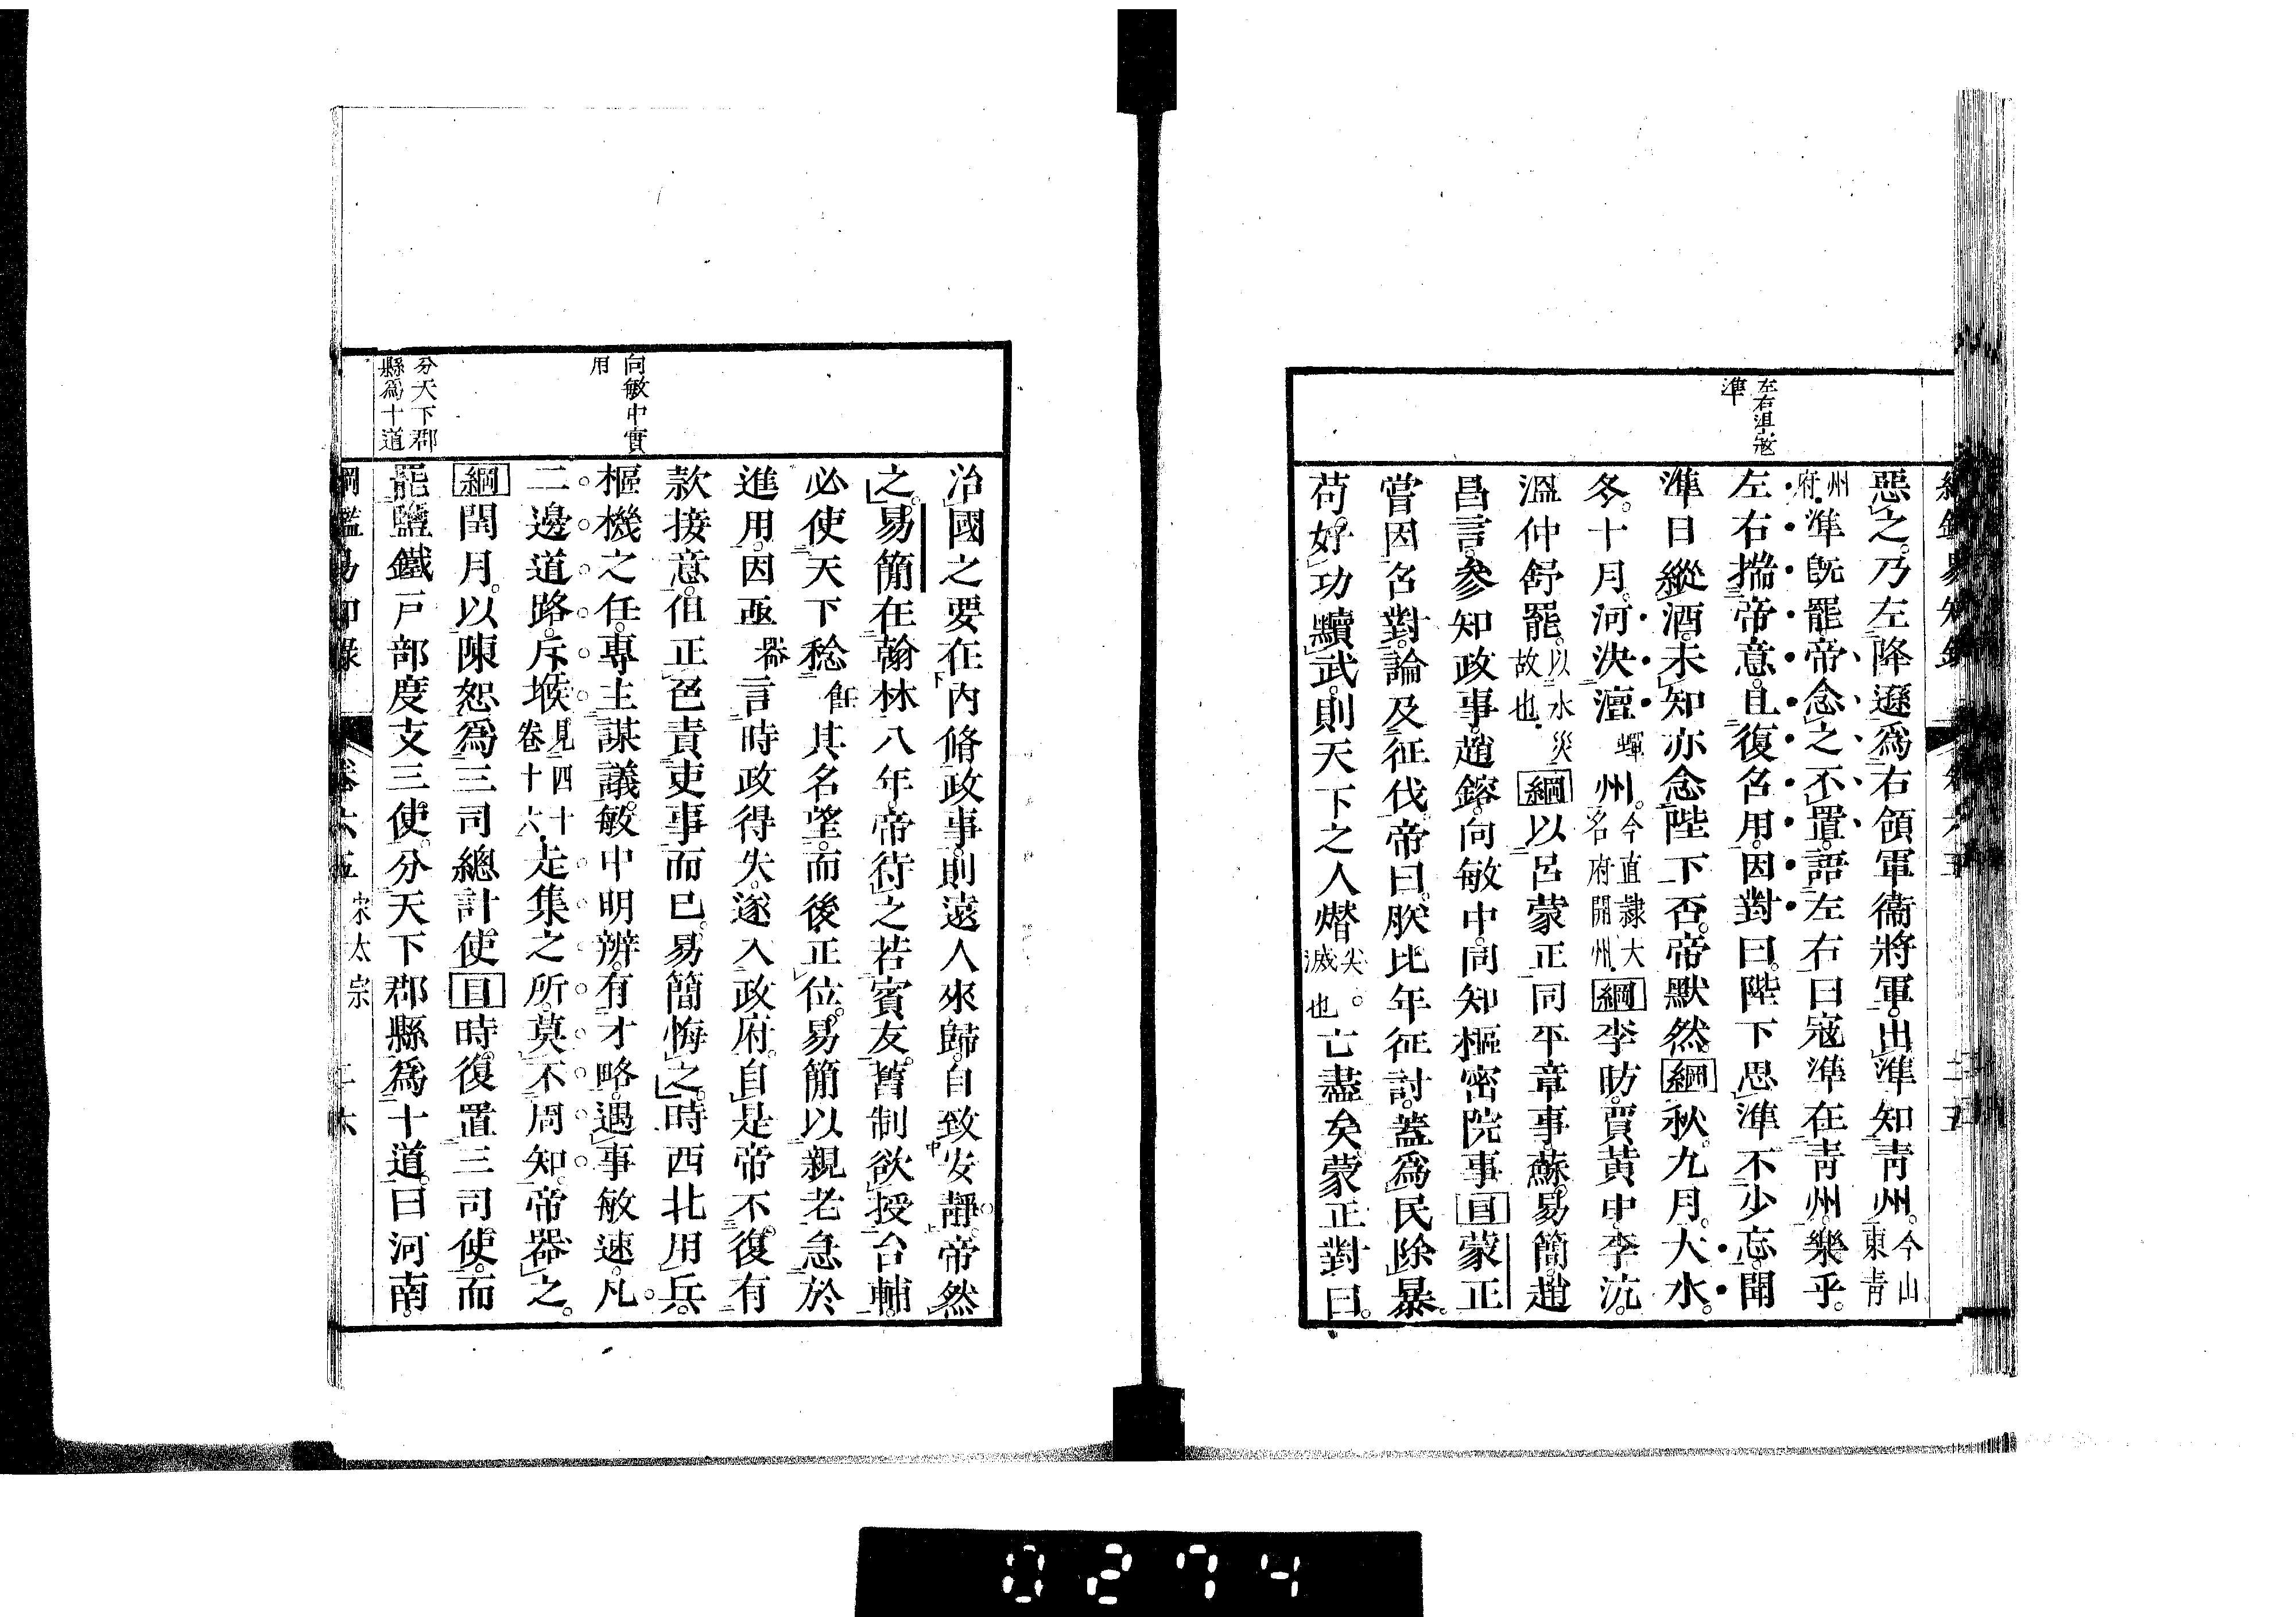 左右沮寇
準
惡之乃左降遜爲右領軍衞將軍出準知靑州今山東靑
州府準旣罷帝念之不置語左右曰寇準在靑州樂乎
左右揣帝意且復召用因對曰陛下思準不少忘聞
準日縱酒未知亦念陛下否帝默然綱秋九月大水
冬十月河決澶蟬州今直隷大名府開州綱李昉賈黃中李沆
溫仲舒罷以水災故也綱以呂蒙正同平章事蘇易簡趙
昌言參知政事趙鎔向敏中同知樞密院事目蒙正
嘗因召對論及征伐帝曰朕比年征討葢爲民除暴
苟好功黷武則天下之人熸尖滅也亡盡矣蒙正對曰
向敏中實
用
分天下郡
縣爲十道
治國之要在內脩政事則遠人來歸自致安靜帝然
之易簡在翰林八年帝待之若賓友舊制欲授台輔
必使天下稔飪其名望而後正位易簡以親老急於
進用因亟器言時政得失遂入政府自是帝不復有
款接意但正色責吏事而已易簡悔之時西北用兵
樞機之任專主謀議敏中明辨有才略遇事敏速凡
二邊道路斥堠見四十卷十六走集之所莫不周知帝器之
綱閏月以陳恕爲三司總計使目時復置三司使而
罷鹽鐵戶部度支三使分天下郡縣爲十道曰河南
綱鑑易知錄 卷六五 宋太宗 二六